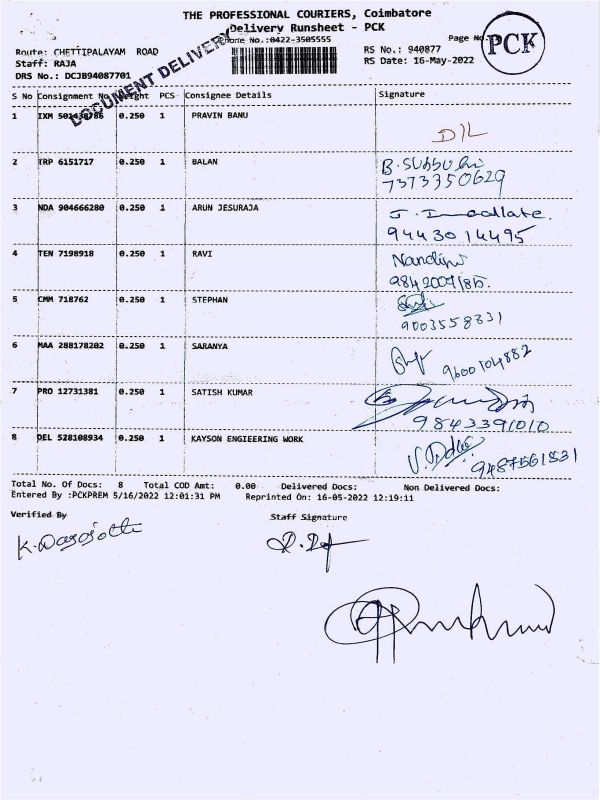 THE PROFESSIONAL COURIERS, Coimbatore
Delivery Runsheet - PCK
Phone No.:0422-3505555
Page No.
PCK
Route: CHETTIPALAYAM ROAD
RS No.: 940877
Staff: RAJA
RS Date: 16-May-2022
DRS No.: DCJB94087701
DOCUMENT DELIVERY
S No Consignment No Weight PCS Consignee Details Signature
1 IXM 0.250 1 PRAVIN BANU
D/L
2 TRP 6151717 0.250 1 BALAN
7373350629
3 NDA 904666280 0.250 1 ARUN JESURAJA
9443014495
4 TEN 7198918 0.250 1 RAVI
5 CMM 718762 0.250 1 STEPHAN
9003558331
6 MAA 288178202 0.250 1 SARANYA
9600104882
7 PRO 12731381 0.250 1 SATISH KUMAR
9843391010
8 DEL 528108934 0.250 1 KAYSON ENGIEERING WORK
9487561531
Total No. Of Docs: 8 Total COD Amt: 0.00 Delivered Docs: Non Delivered Docs:
Entered By :PCKPREM 5/16/2022 12:01:31 PM Reprinted On: 16-05-2022 12:19:11
Verified By Staff Signature